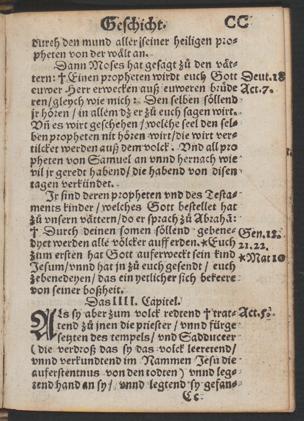 Geschicht. CC
durch den mund aller seiner heiligen pro⸗
pheten von der wält an.
Dann Moses hat gesagt zů den vät⸗
tern: † Einen propheten wirdt euch Gott Deut.18
euwer Herr erwecken auß euweren brüde Act.7.
ren / gleych wie mich: Den selben söllend
jr hören / in allem dz er zů euch sagen wirt.
Vñ es wirt geschehen / welche seel den sel⸗
ben propheten nit hören wirt / die wirt ver⸗
tilcket werden auß dem volck. Vnd all pro
pheten von Samuel an vnnd hernach wie
vil jr geredt habend / die habend von disen
tagen verkündet.
Jr sind deren propheten vnd des Testa⸗
ments kinder / welches Gott bestellet hat
zů vnsern vättern / do er sprach zů Abrahã:
† Durch deinen somen söllend gebene⸗ Gen.12.
dyet werden alle völcker auff erden. *Euch 21.22.
zum ersten hat Gott auferweckt sein kind *Mat 10
Jesum / vnnd hat jn zů euch gesend / euch
zebenedeyen / das ein yetlicher sich bekeere
von seiner boßheit.
Das IIII. Capitel.
Als sy aber zum volck redtend † trat⸗ Act.5.
tend zů jnen die priester / vnnd fürge
setzten des tempels / vnd Sadduceer
(die verdroß das sy das volck leeretend /
vnnd verkundtend im Nammen Jesu die
auferstentnus von den todten) vnnd leg⸗
tend hand an sy / vnnd legtend sy gefan⸗
Cc